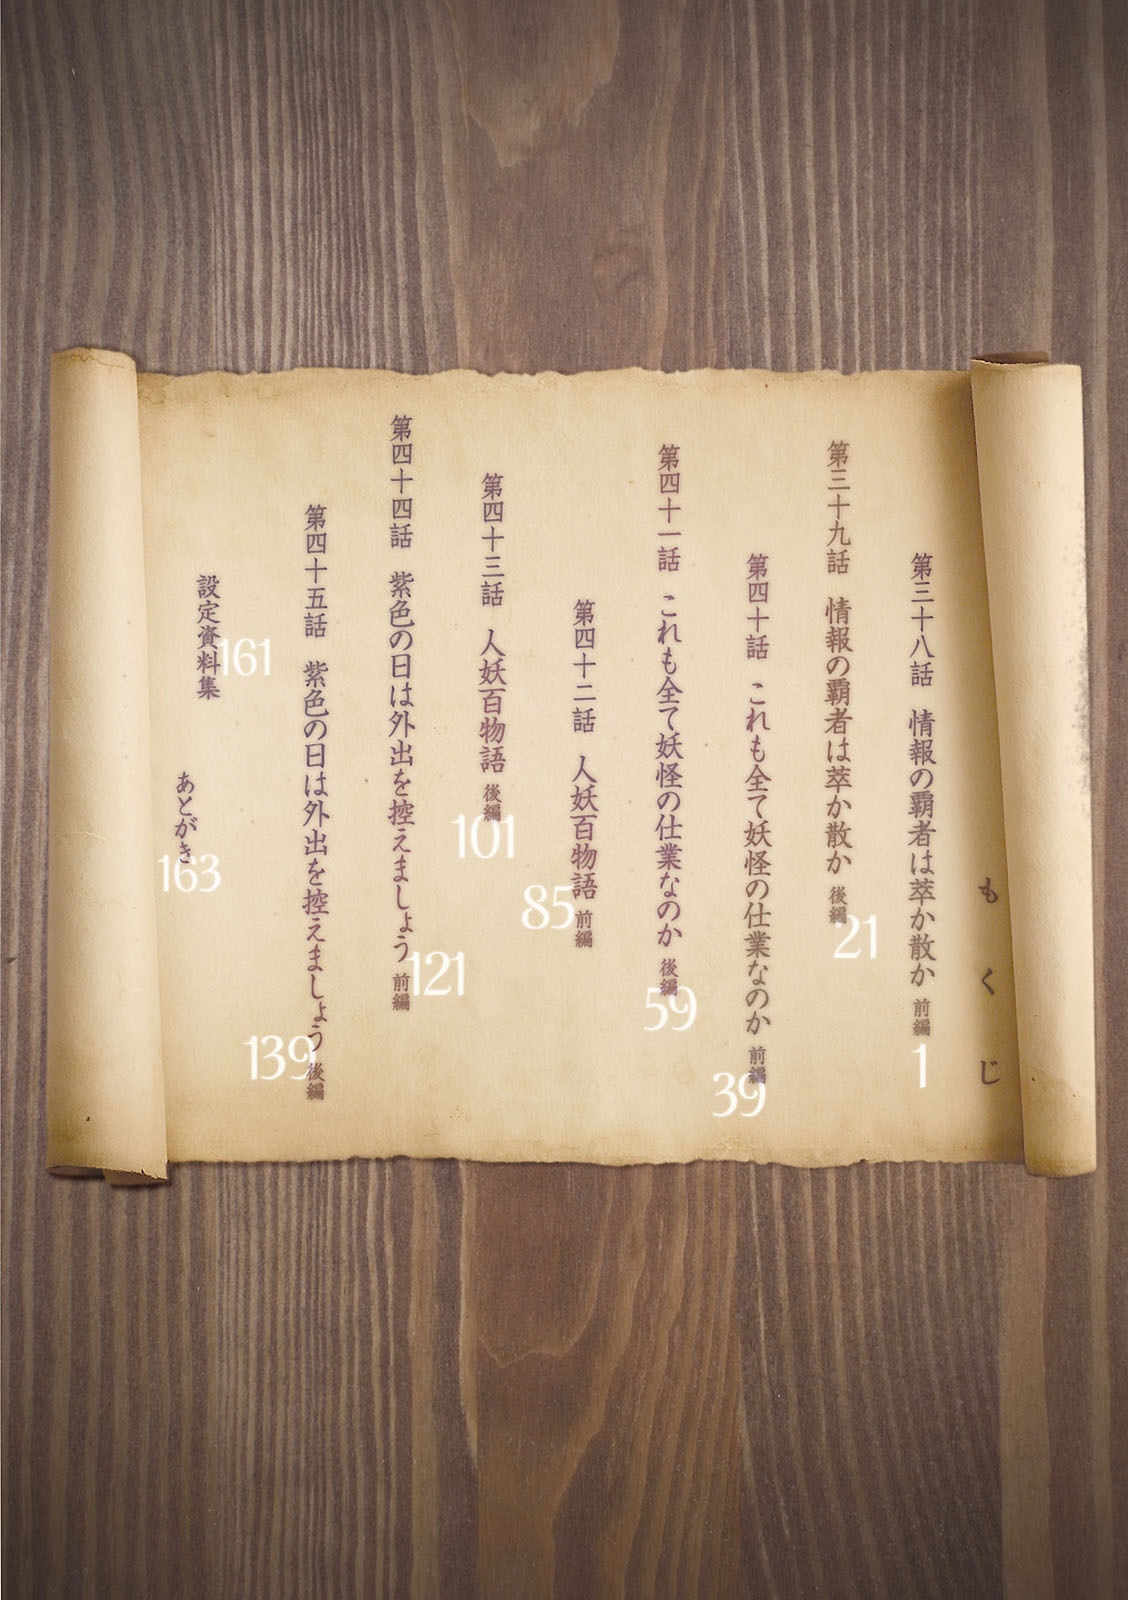 もくじ
第三十八話　情報の覇者は萃か散か　前編
1
第三十九話　情報の覇者は萃か散か　後編
21
第四十話　これも全て妖怪の仕業なのか　前編
39
第四十一話　これも全て妖怪の仕業なのか　後編
59
第四十二話　人妖百物語　前編
85
第四十三話　人妖百物語　後編
101
第四十四話　紫色の日は外出を控えましょう　前編
121
第四十五話　紫色の日は外出を控えましょう　後編
139
設定資料集
161
あとがき
163